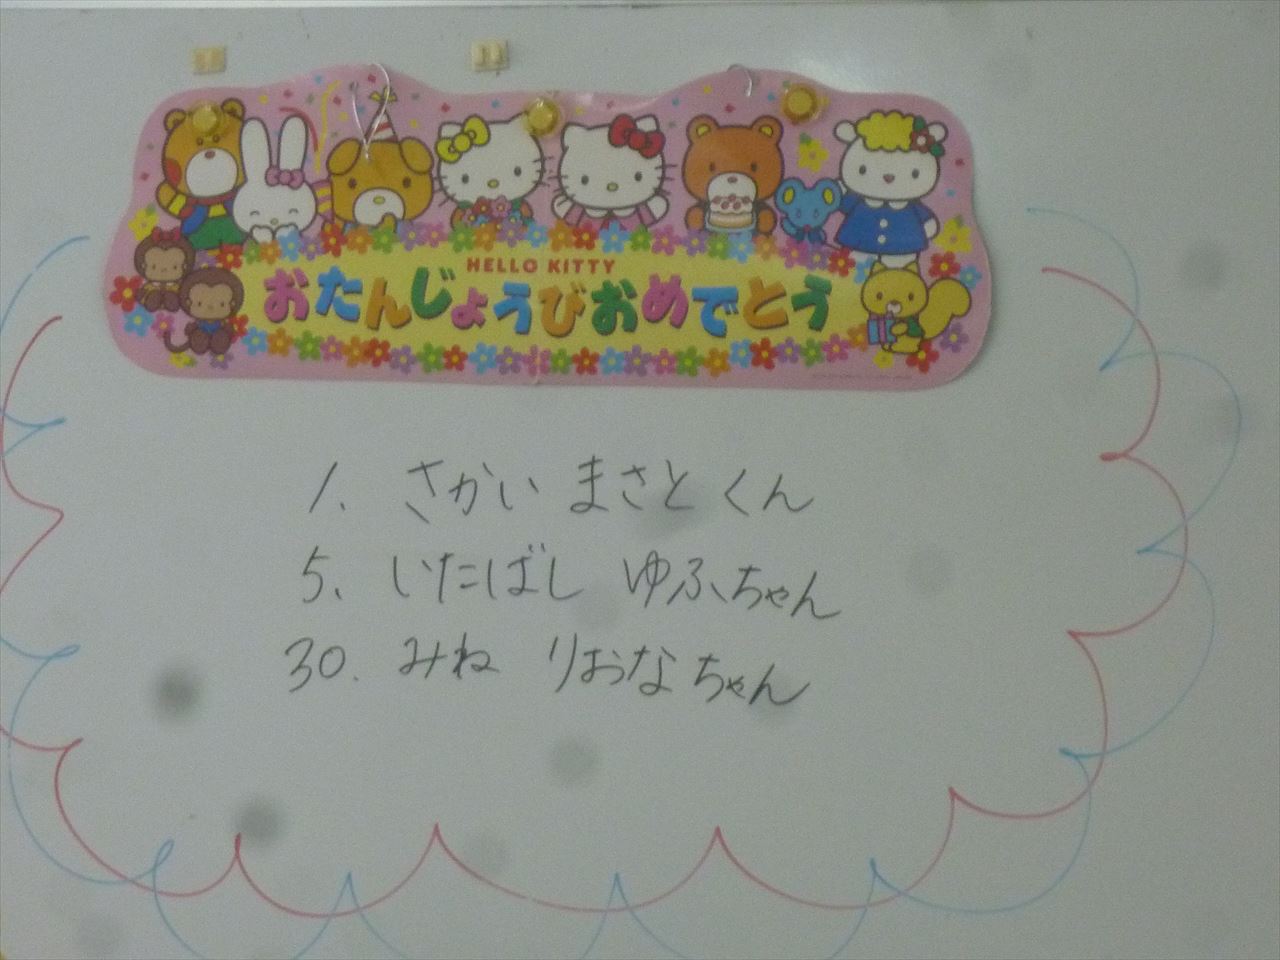 HELLO KITTY
おたんじょうびおめでとう
1. さかい まさと くん
5. いたばし ゆふちゃん
30. みね りおなちゃん